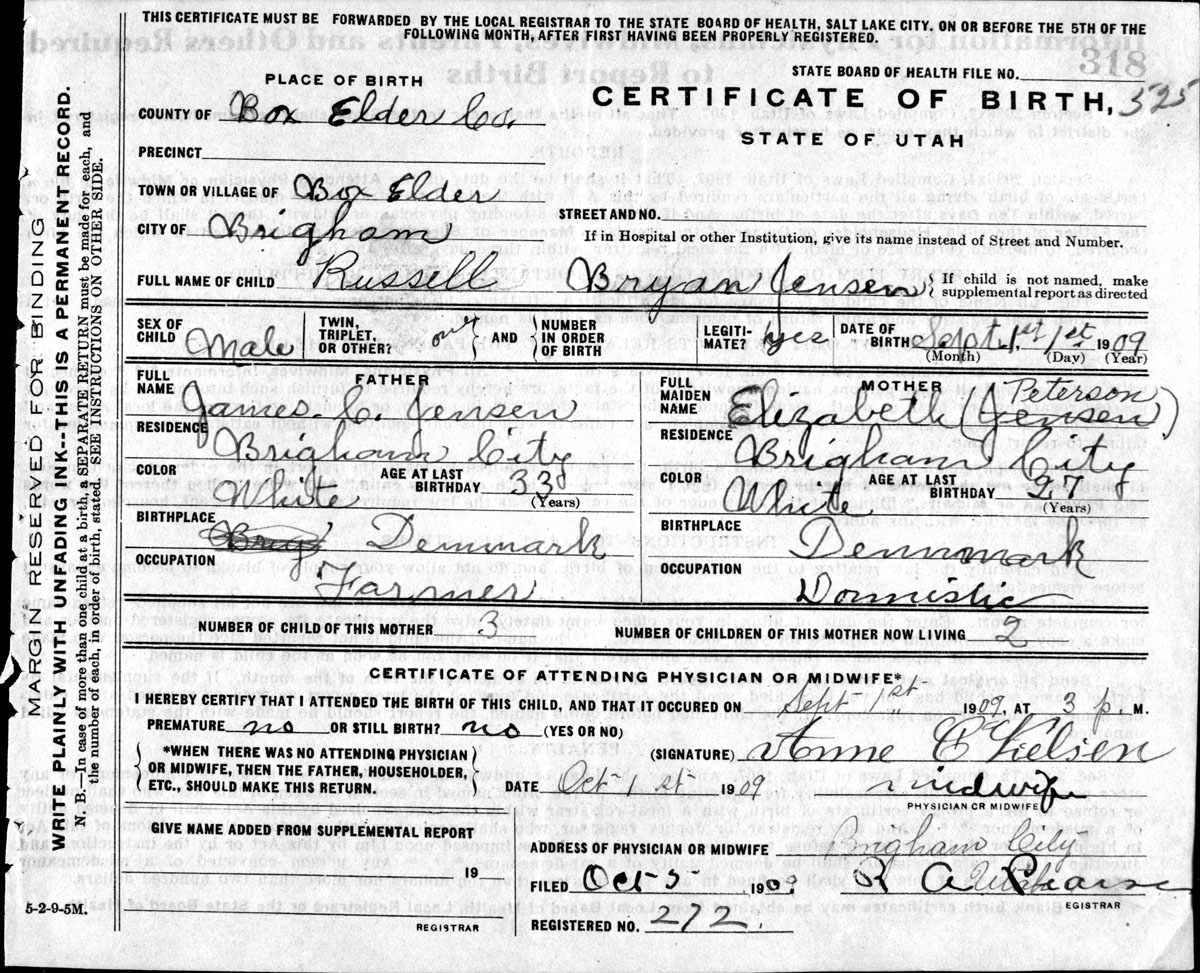 THIS CERTIFICATE MUST BE FORWARDED BY THE LOCAL REGISTRAR TO THE STATE BOARD OF HEALTH, SALT LAKE CITY, ON OR BEFORE THE 5TH OF THE
FOLLOWING MONTH, AFTER FIRST HAVING BEEN PROPERLY REGISTERED.
318
STATE BOARD OF HEALTH FILE NO.
PLACE OF BIRTH
CERTIFICATE OF BIRTH, 325
COUNTY OF Box Elder Co.
STATE OF UTAH
PRECINCT
TOWN OR VILLAGE OF Box Elder
STREET AND NO.
CITY OF Brigham
If in Hospital or other Institution, give its name instead of Street and Number.
FULL NAME OF CHILD Russell Bryan Jensen { If child is not named, make
supplemental report as directed
SEX OF CHILD Male TWIN, TRIPLET, OR OTHER? AND NUMBER IN ORDER OF BIRTH LEGITI-MATE? yes DATE OF BIRTH Sept. 1st 1st 1909
(Month) (Day) (Year)
FATHER
FULL NAME James C. Jensen
RESIDENCE
Brigham City
COLOR White AGE AT LAST BIRTHDAY 33
(Years)
BIRTHPLACE
Brig Denmark
OCCUPATION
Farmer
MOTHER
FULL MAIDEN NAME Elizabeth (Jensen) Peterson
RESIDENCE
Brigham City
COLOR White AGE AT LAST BIRTHDAY 27
(Years)
BIRTHPLACE
Dennmark
OCCUPATION
Domistic
NUMBER OF CHILD OF THIS MOTHER 3 NUMBER OF CHILDREN OF THIS MOTHER NOW LIVING 2
CERTIFICATE OF ATTENDING PHYSICIAN OR MIDWIFE*
I HEREBY CERTIFY THAT I ATTENDED THE BIRTH OF THIS CHILD, AND THAT IT OCCURED ON Sept 1st 1909, AT 3 p. M.
PREMATURE no OR STILL BIRTH? no (YES OR NO)
*WHEN THERE WAS NO ATTENDING PHYSICIAN
OR MIDWIFE, THEN THE FATHER, HOUSEHOLDER,
ETC., SHOULD MAKE THIS RETURN.
(SIGNATURE) Anne C
DATE Oct 1st 1909 midwife
PHYSICIAN OR MIDWIFE
GIVE NAME ADDED FROM SUPPLEMENTAL REPORT
19
REGISTRAR
ADDRESS OF PHYSICIAN OR MIDWIFE Brigham City
FILED Oct 5 1909 R A
EGISTRAR
REGISTERED NO. 272.
5-2-9-5M.
MARGIN RESERED FOR BINDING
WRITE PLAINLY WITH UNFADING INK--THIS IS A PERMANENT RECORD.
N. B.—In case of more than one child at a birth, a SEPARATE RETURN must be made for each, and
the number of each, in order of birth, stated. SEE INSTRUCTIONS ON OTHER SIDE.